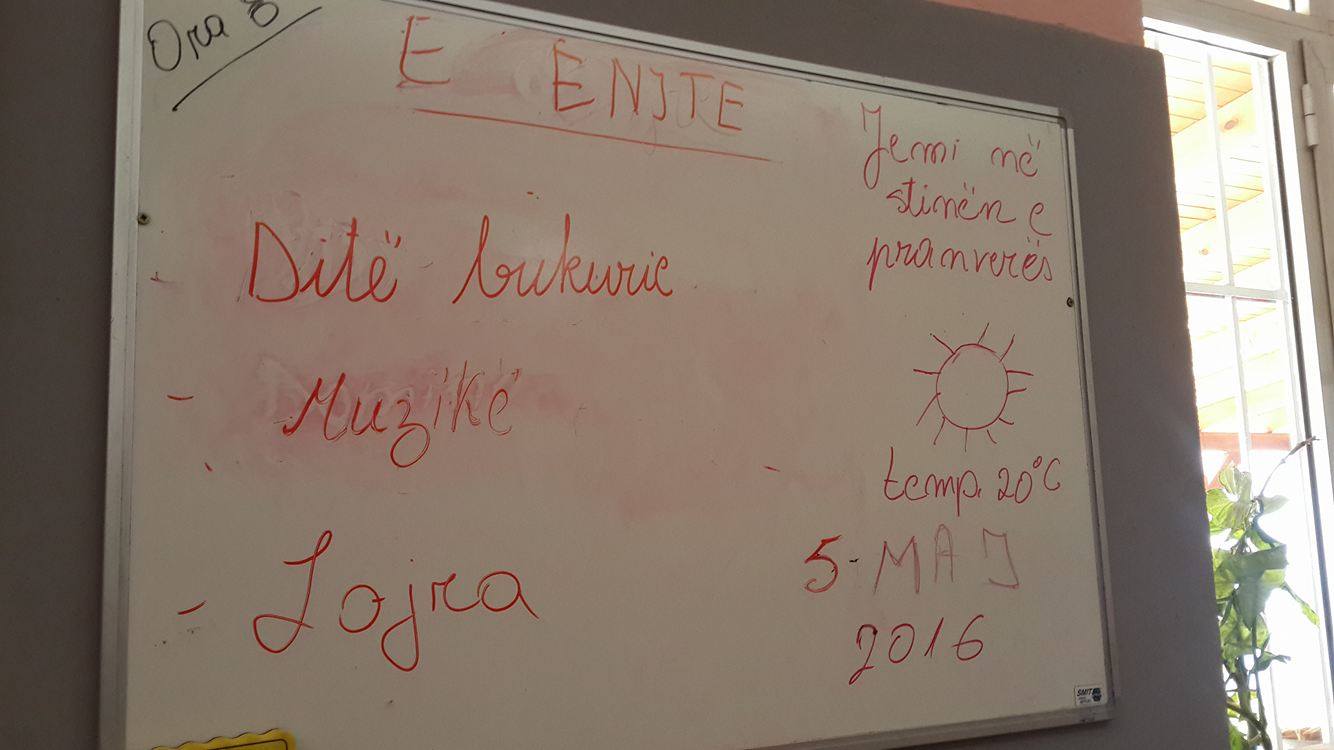 Ora 8
E ENJTE
- Ditë bukurie
- Muzikë
- Lojra
Jemi në
stinën e
pranverës
temp. 20°C
5-MAJ
2016
SMIT